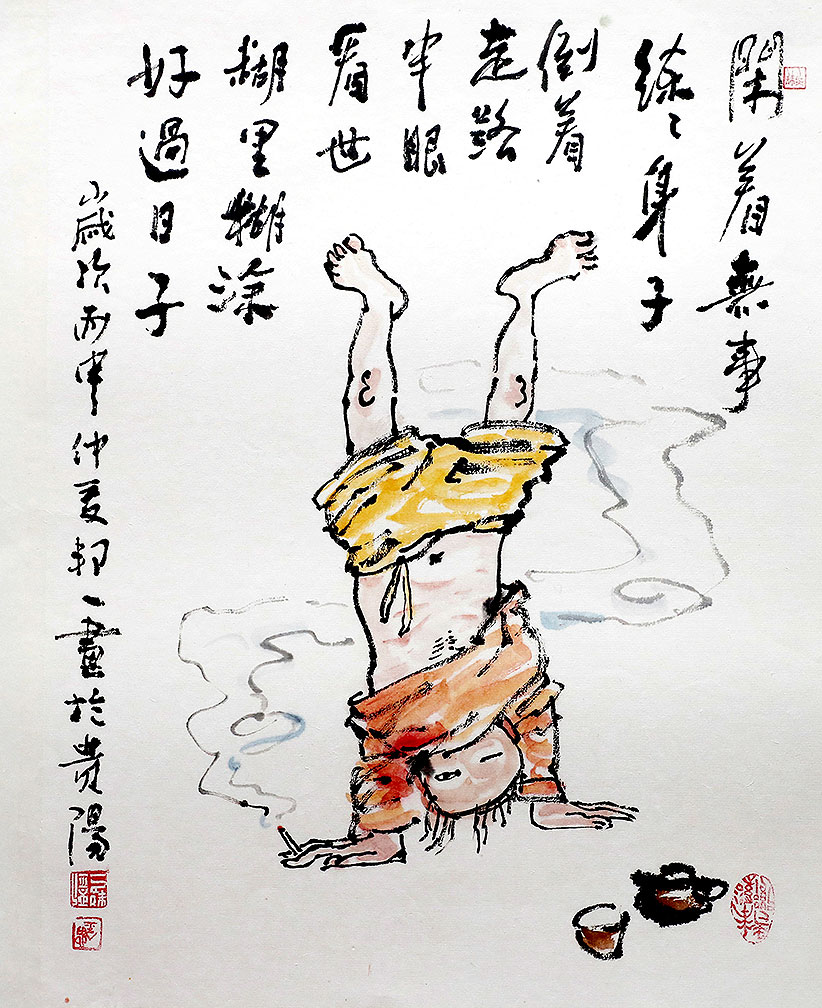 閑着無事
練々身子
倒着
走路
半眼
看世
糊里糊涂
好過日子
歲次丙申仲夏邦一畫於贵陽